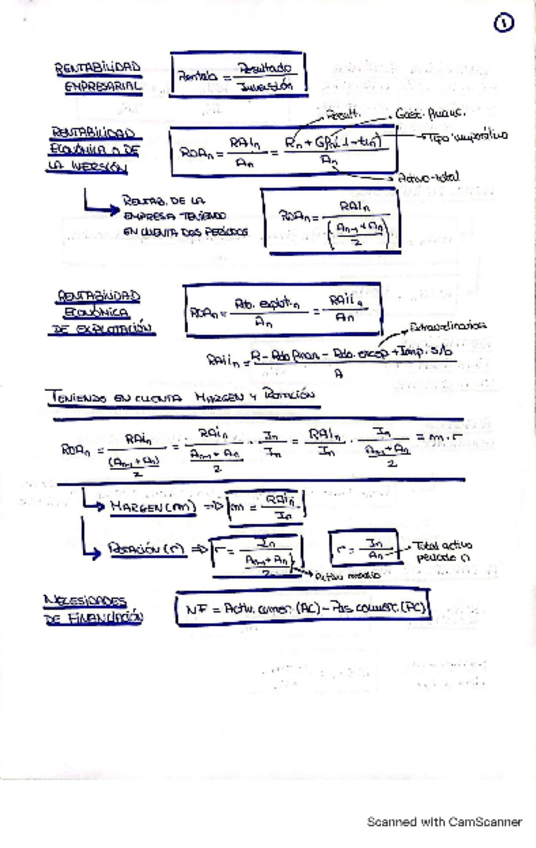 1
RENTABILIDAD EMPRESARIAL
Rentab = Resultado / Inversión
RENTABILIDAD ECONÓMICA O DE LA INVERSIÓN
ROAn = RAIn / An = Rn + Gfn(1-tn) / An
Result.
Gast. financ.
Tipo impositivo
Activo total
RENTAB. DE LA EMPRESA TENIENDO EN CUENTA DOS PERÍODOS
ROAn = RAIn / ((An-1 + An) / 2)
RENTABILIDAD ECONÓMICA DE EXPLOTACIÓN
ROAn = Rdo. explot.n / An = RAIIn / An
Extraordinarios
RAIIn = R - Rdo finan - Rdo. excep + Imp. s/b / A
TENIENDO EN CUENTA MARGEN Y ROTACIÓN
ROAn = RAIn / ((An-1 + An) / 2) = RAIn / ((An-1 + An) / 2) · In / In = RAIn / In · In / ((An-1 + An) / 2) = m · r
MARGEN (m) => m = RAIn / In
ROTACIÓN (r) => r = In / ((An-1 + An) / 2)
Activo medio
r = In / An
Total activo período n
NECESIDADES DE FINANCIACIÓN
NF = Activ. comer. (AC) - Pas comerc. (PC)
Scanned with CamScanner